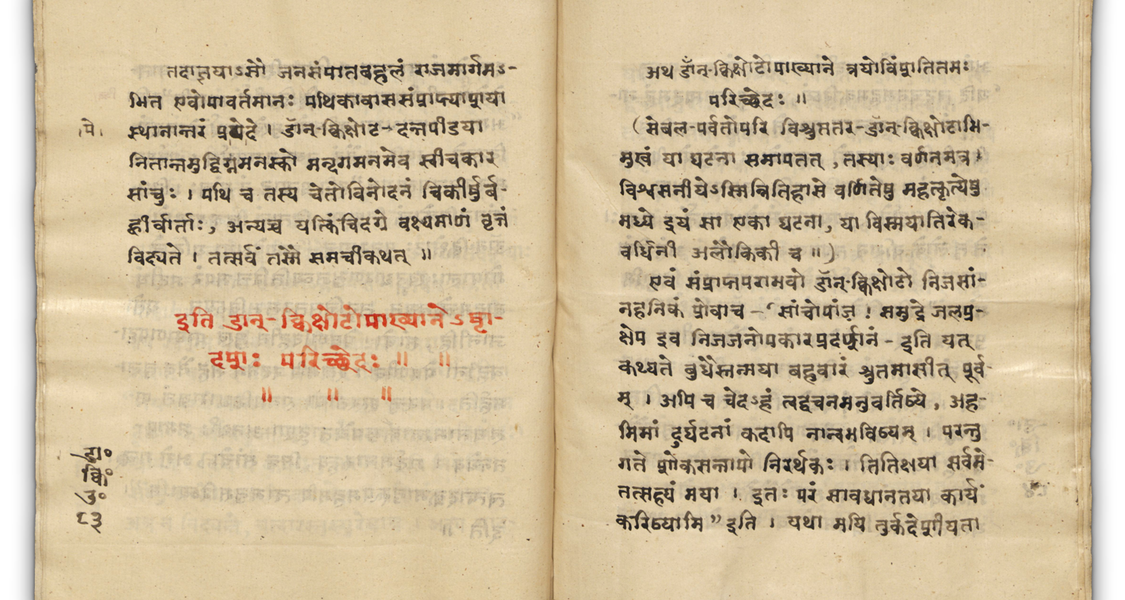 तदाज्ञयाऽसौ जनसंपातबहुलं राजमार्गमऽ-
भित एवोपावर्तमानः पथिकावाससंप्राप्त्याशया
स्थानान्तरं प्रपेदे । डॉन्-क्विक्षोट-दन्तपीडया
नितान्तमुद्विग्नमनस्को मन्दगमनमेव स्वीचकार
सांचुः । पथि च तस्य चेतोविनोदनं चिकीर्षुर्ब-
ह्वीर्वार्ताः, अन्यच्च यत्किंचिदग्रे वक्ष्यमाणं वृत्तं
विद्यते । तत्सर्वं तस्मै समचीकथत् ॥
इति डान्-क्विक्षोटोपाख्यानेऽष्टा-
दशः परिच्छेदः ॥ ॥
॥ ॥ ॥
पे।
डा०
क्वि०
उ०
८३
अथ डॉन्-क्विक्षोटोपाख्याने त्रयोविंशतितमः
परिच्छेदः ॥
(सेबल-पर्वतोपरि विश्रुततर-डॉन्-क्विक्षोटाभि-
मुखं या घटना समापतत्, तस्याः वर्णनमत्र ।
विश्वसनीयेऽस्मिन्नितिहासे वर्णितेषु महत्कृत्येषु
मध्ये इयं सा एका घटना, या विस्मयातिरेक-
वर्धिनी अलौकिकी च ॥)
एवं संप्राप्तपराभवो डॉन्-क्विक्षोटो निजसां-
ग्रहनिकं प्रोवाच - “सांचोपांज ! समुद्रे जलप्र-
क्षेप इव निजजनोपकारप्रदर्शनं - इति यत्
कथ्यते बुधैस्तन्मया बहुवारं श्रुतमासीत् पूर्व-
म् । अपि च चेदऽहं त्वद्वचनमनुवर्तिष्ये, अह-
मिमां दुर्घटनां कदापि नान्वभविष्यम् । परन्तु
गते शोकसन्तापो निरर्थकः । तितिक्षया सर्वमे-
तत्सह्यं मया । इतः परं सावधानतया कार्यं
करिष्यामि” इति । यथा मयि तुर्कदेशीयता